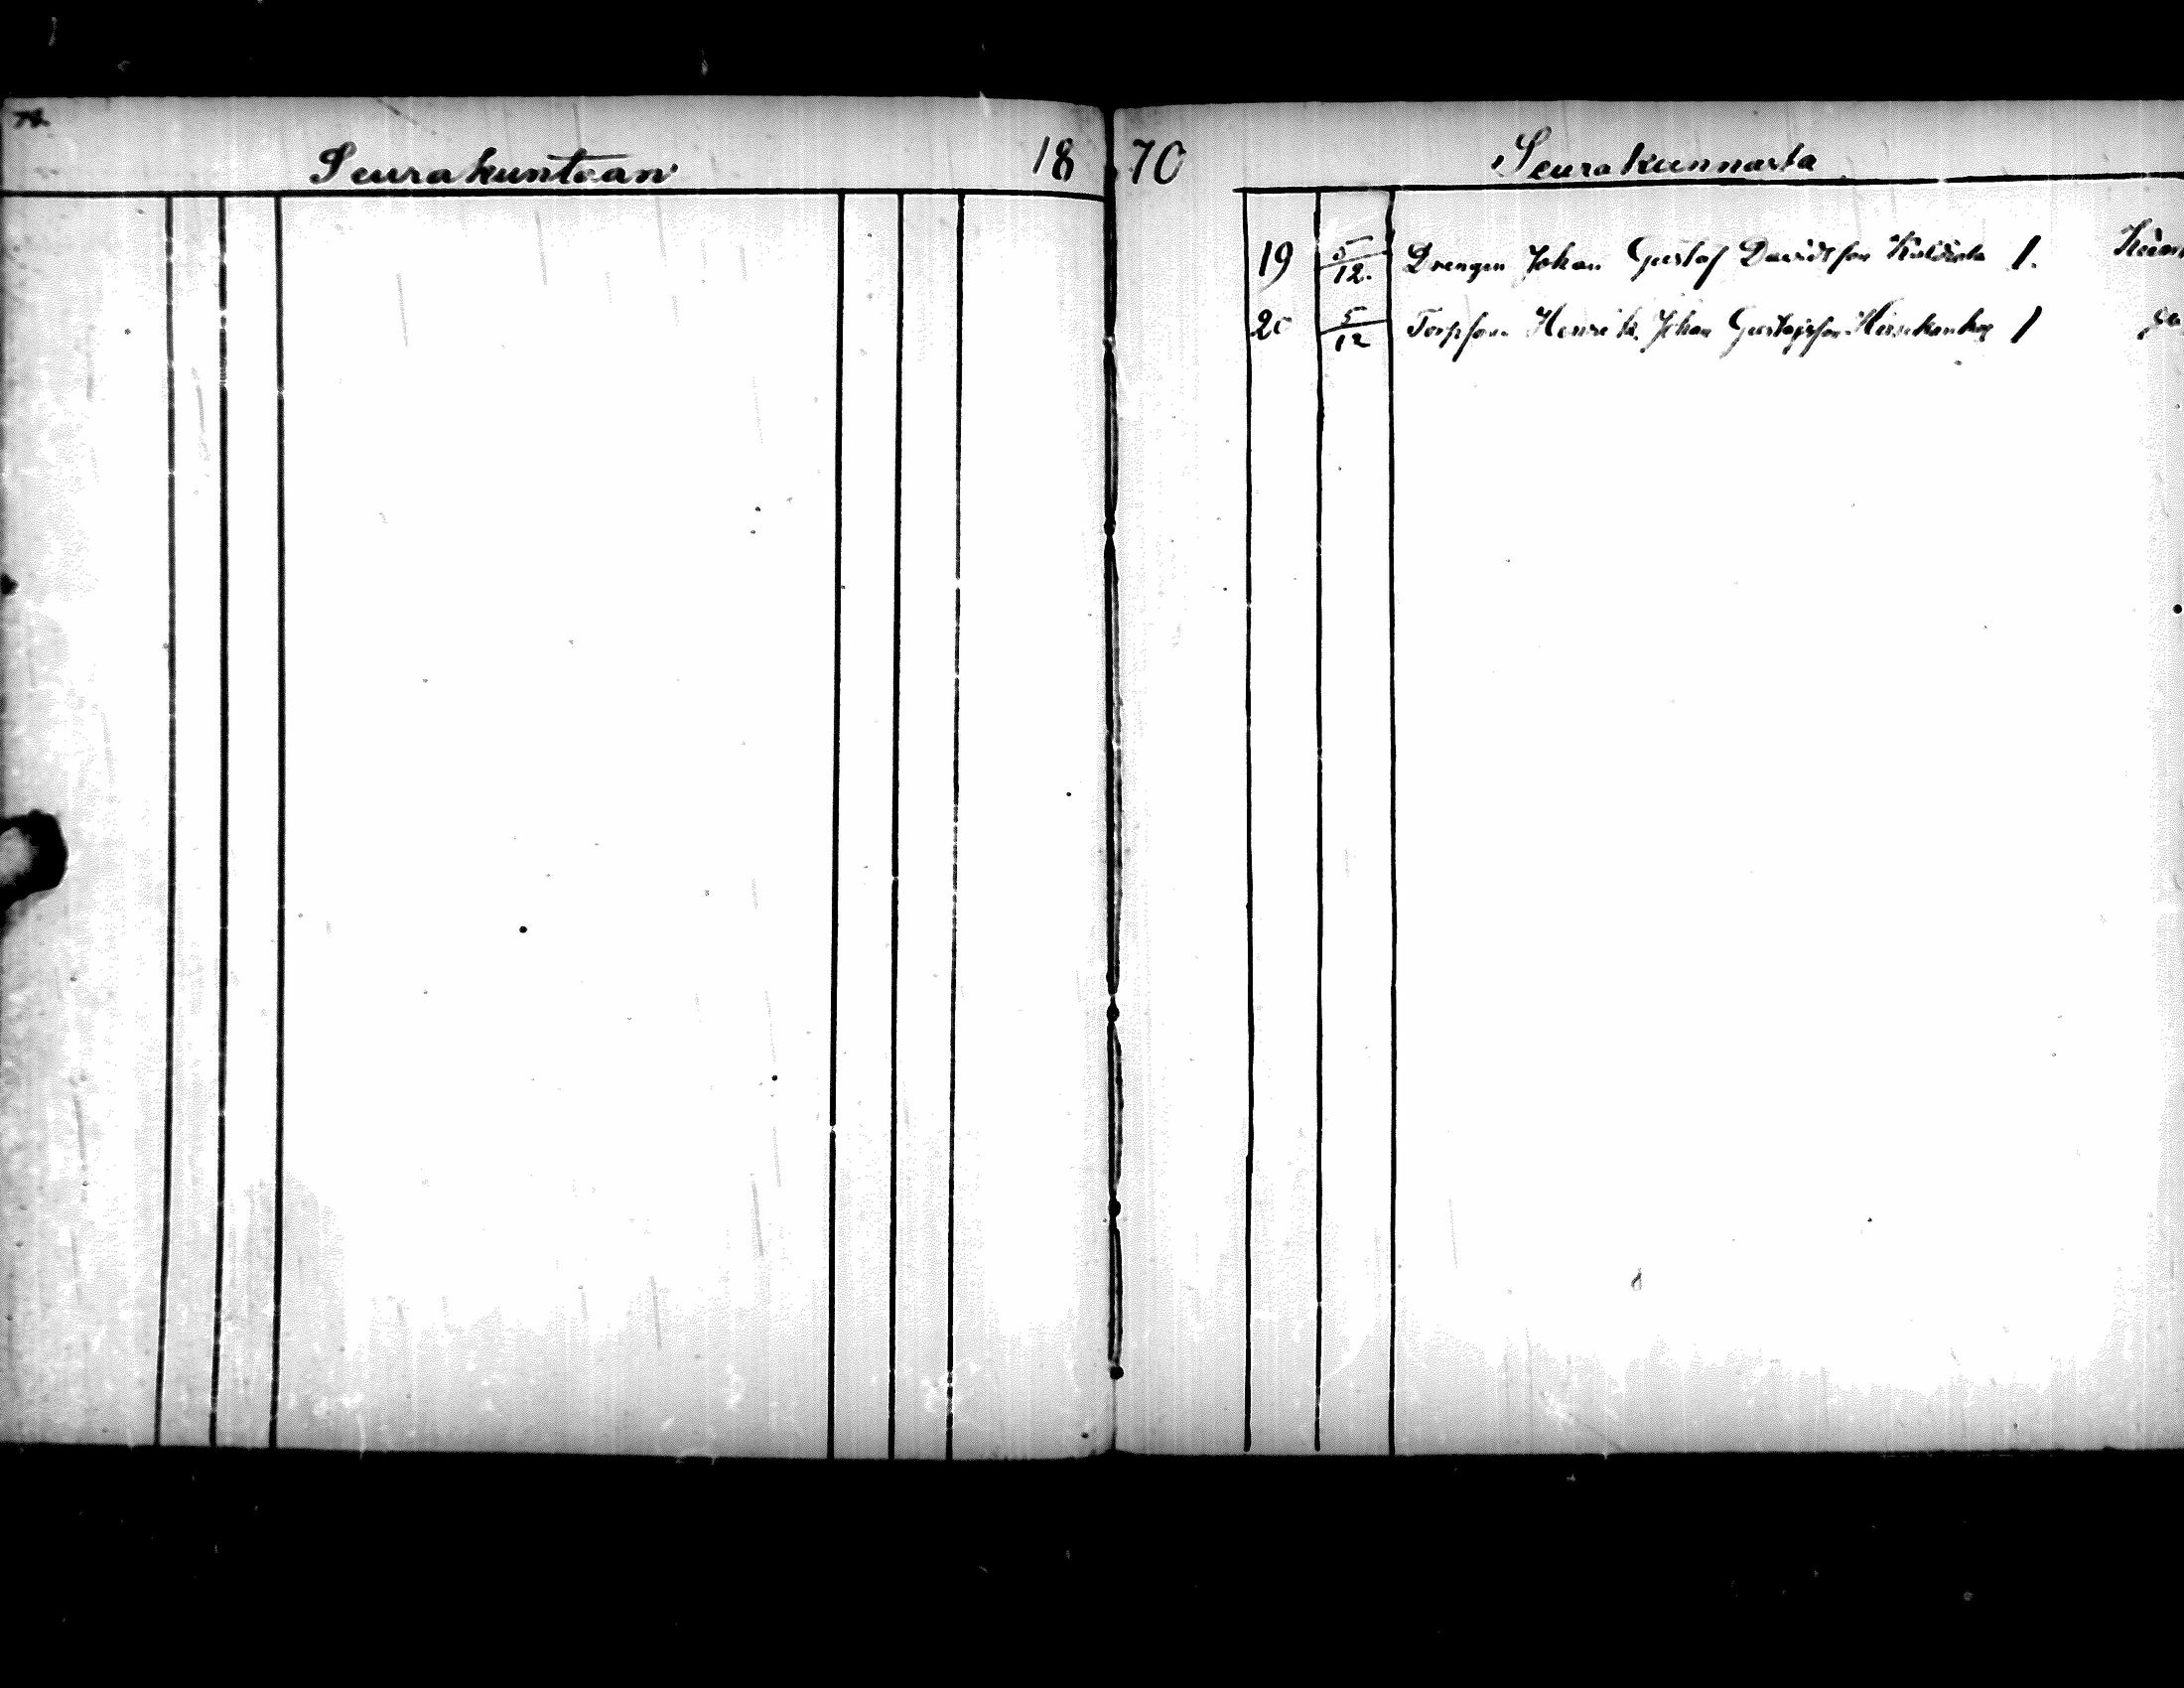 Seurakuntaan 18
70 Seurakunnasta
19 5/12. Drengen Johan Gustaf Davidsson 1.
20 5/12 Torpson Henrik Johan Gustafsson 1